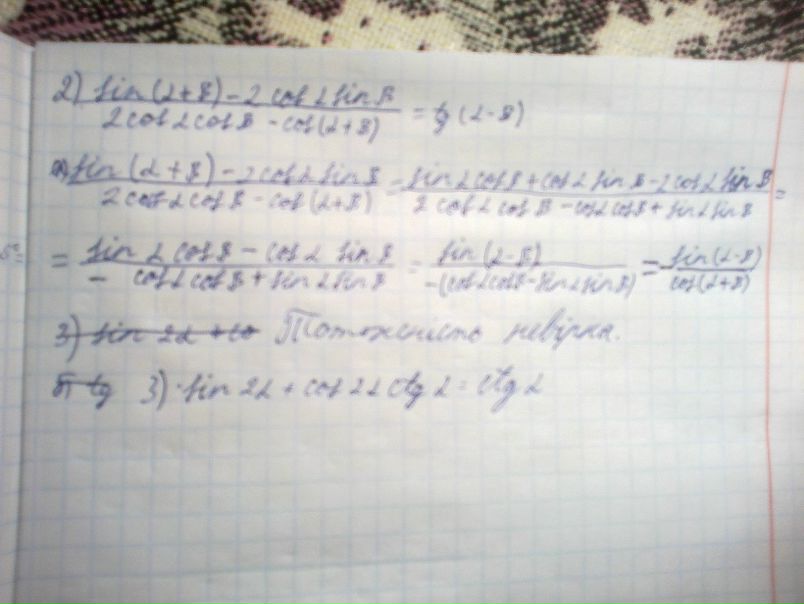 2) sin(α+β) - 2cosα sinβ / 2cosα cosβ - cos(α+β) = tg(α-β)
sin(α+β) - 2cosα sinβ / 2cosα cosβ - cos(α+β) = sinα cosβ + cosα sinβ - 2cosα sinβ / 2cosα cosβ - cosα cosβ + sinα sinβ =
= sinα cosβ - cosα sinβ / - cosα cosβ + sinα sinβ = sin(α-β) / -(cosα cosβ - sinα sinβ) = - sin(α-β) / cos(α+β)
3) sin 2α + co Тотожність невірна.
б) tg 3) sin 2α + cos 2α ctg α = ctg α